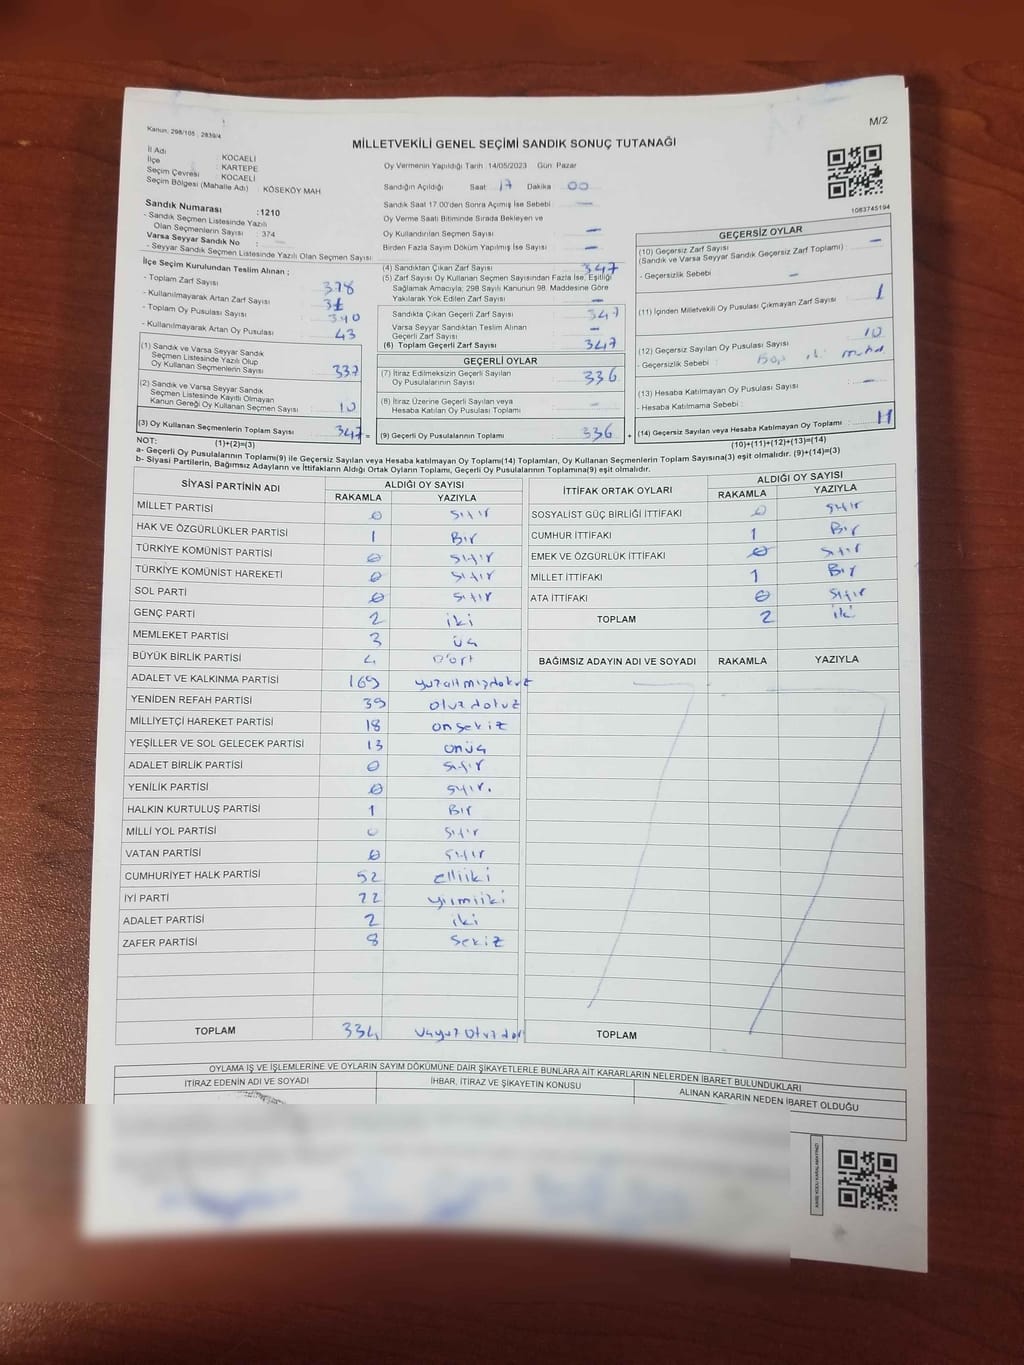 Kanun, 298/105 ; 2839/4
M/2
MİLLETVEKİLİ GENEL SEÇİMİ SANDIK SONUÇ TUTANAĞI
İl Adı : KOCAELİ
İlçe : KARTEPE
Seçim Çevresi : KOCAELİ
Seçim Bölgesi (Mahalle Adı) : KÖSEKÖY MAH
Sandık Numarası :1210
- Sandık Seçmen Listesinde Yazılı
Olan Seçmenlerin Sayısı : 374
Varsa Seyyar Sandık No : —
- Seyyar Sandık Seçmen Listesinde Yazılı Olan Seçmen Sayısı
Oy Vermenin Yapıldığı Tarih :14/05/2023 Gün :Pazar
Sandığın Açıldığı Saat 17 Dakika 00
Sandık Saat 17.00'den Sonra Açımış İse Sebebi : —
Oy Verme Saati Bitiminde Sırada Bekleyen ve
Oy Kullandırılan Seçmen Sayısı —
Birden Fazla Sayım Döküm Yapılmış İse Sayısı —
1083745194
İlçe Seçim Kurulundan Teslim Alınan ;
- Toplam Zarf Sayısı 378
- Kullanılmayarak Artan Zarf Sayısı 31
- Toplam Oy Pusulası Sayısı 390
- Kullanılmayarak Artan Oy Pusulası 43
(1) Sandık ve Varsa Seyyar Sandık
Seçmen Listesinde Yazılı Olup
Oy Kullanan Seçmenlerin Sayısı 337
(2) Sandık ve Varsa Seyyar Sandık
Seçmen Listesinde Kayıtlı Olmayan
Kanun Gereği Oy Kullanan Seçmen Sayısı 10
(3) Oy Kullanan Seçmenlerin Toplam Sayısı 347 =
(4) Sandıktan Çıkan Zarf Sayısı 347
(5) Zarf Sayısı Oy Kullanan Seçmen Sayısından Fazla İse, Eşitliği
Sağlamak Amacıyla; 298 Sayılı Kanunun 98. Maddesine Göre
Yakılarak Yok Edilen Zarf Sayısı : —
Sandıkta Çıkan Geçerli Zarf Sayısı 347
Varsa Seyyar Sandıktan Teslim Alınan
Geçerli Zarf Sayısı : —
(6) Toplam Geçerli Zarf Sayısı 347
GEÇERLİ OYLAR
(7) İtiraz Edilmeksizin Geçerli Sayılan
Oy Pusulalarının Sayısı 336
(8) İtiraz Üzerine Geçerli Sayılan veya
Hesaba Katılan Oy Pusulası Toplamı —
(9) Geçerli Oy Pusulalarının Toplamı 336 +
GEÇERSİZ OYLAR
(10) Geçersiz Zarf Sayısı
(Sandık ve Varsa Seyyar Sandık Geçersiz Zarf Toplamı) —
- Geçersizlik Sebebi : —
(11) İçinden Milletvekili Oy Pusulası Çıkmayan Zarf Sayısı 1
(12) Geçersiz Sayılan Oy Pusulası Sayısı 10
- Geçersizlik Sebebi :
(13) Hesaba Katılmayan Oy Pusulası Sayısı —
- Hesaba Katılmama Sebebi :
(14) Geçersiz Sayılan veya Hesaba Katılmayan Oy Toplamı 11
NOT: (1)+(2)=(3) (10)+(11)+(12)+(13)=(14)
a- Geçerli Oy Pusulalarının Toplamı(9) ile Geçersiz Sayılan veya Hesaba katılmayan Oy Toplamı(14) Toplamları, Oy Kullanan Seçmenlerin Toplam Sayısına(3) eşit olmalıdır. (9)+(14)=(3)
b- Siyasi Partilerin, Bağımsız Adayların ve İttifakların Aldığı Ortak Oyların Toplamı, Geçerli Oy Pusulalarının Toplamına(9) eşit olmalıdır.
SİYASİ PARTİNİN ADI ALDIĞI OY SAYISI
RAKAMLA YAZIYLA
MİLLET PARTİSİ 0 sıfır
HAK VE ÖZGÜRLÜKLER PARTİSİ 1 Bir
TÜRKİYE KOMÜNİST PARTİSİ 0 sıfır
TÜRKİYE KOMÜNİST HAREKETİ 0 sıfır
SOL PARTİ 0 sıfır
GENÇ PARTİ 2 iki
MEMLEKET PARTİSİ 3 üç
BÜYÜK BİRLİK PARTİSİ 4 Dört
ADALET VE KALKINMA PARTİSİ 169 yuzaltmışdokuz
YENİDEN REFAH PARTİSİ 39 otuzdokuz
MİLLİYETÇİ HAREKET PARTİSİ 18 onsekiz
YEŞİLLER VE SOL GELECEK PARTİSİ 13 onüç
ADALET BİRLİK PARTİSİ 0 sıfır
YENİLİK PARTİSİ 0 sıfır.
HALKIN KURTULUŞ PARTİSİ 1 Bir
MİLLİ YOL PARTİSİ 0 sıfır
VATAN PARTİSİ 0 sıfır
CUMHURİYET HALK PARTİSİ 52 elliiki
İYİ PARTİ 22 yirmiiki
ADALET PARTİSİ 2 iki
ZAFER PARTİSİ 8 sekiz
TOPLAM 334 üçyuzotuzdör
İTTİFAK ORTAK OYLARI ALDIĞI OY SAYISI
RAKAMLA YAZIYLA
SOSYALİST GÜÇ BİRLİĞİ İTTİFAKI 0 sıfır
CUMHUR İTTİFAKI 1 Bir
EMEK VE ÖZGÜRLÜK İTTİFAKI 0 sıfır
MİLLET İTTİFAKI 1 Bir
ATA İTTİFAKI 0 sıfır
TOPLAM 2 iki
BAĞIMSIZ ADAYIN ADI VE SOYADI RAKAMLA YAZIYLA
TOPLAM
OYLAMA İŞ VE İŞLEMLERİNE VE OYLARIN SAYIM DÖKÜMÜNE DAİR ŞİKAYETLERLE BUNLARA AİT KARARLARIN NELERDEN İBARET BULUNDUKLARI
İTİRAZ EDENİN ADI VE SOYADI
İHBAR, İTİRAZ VE ŞİKAYETİN KONUSU
ALINAN KARARIN NEDEN İBARET OLDUĞU